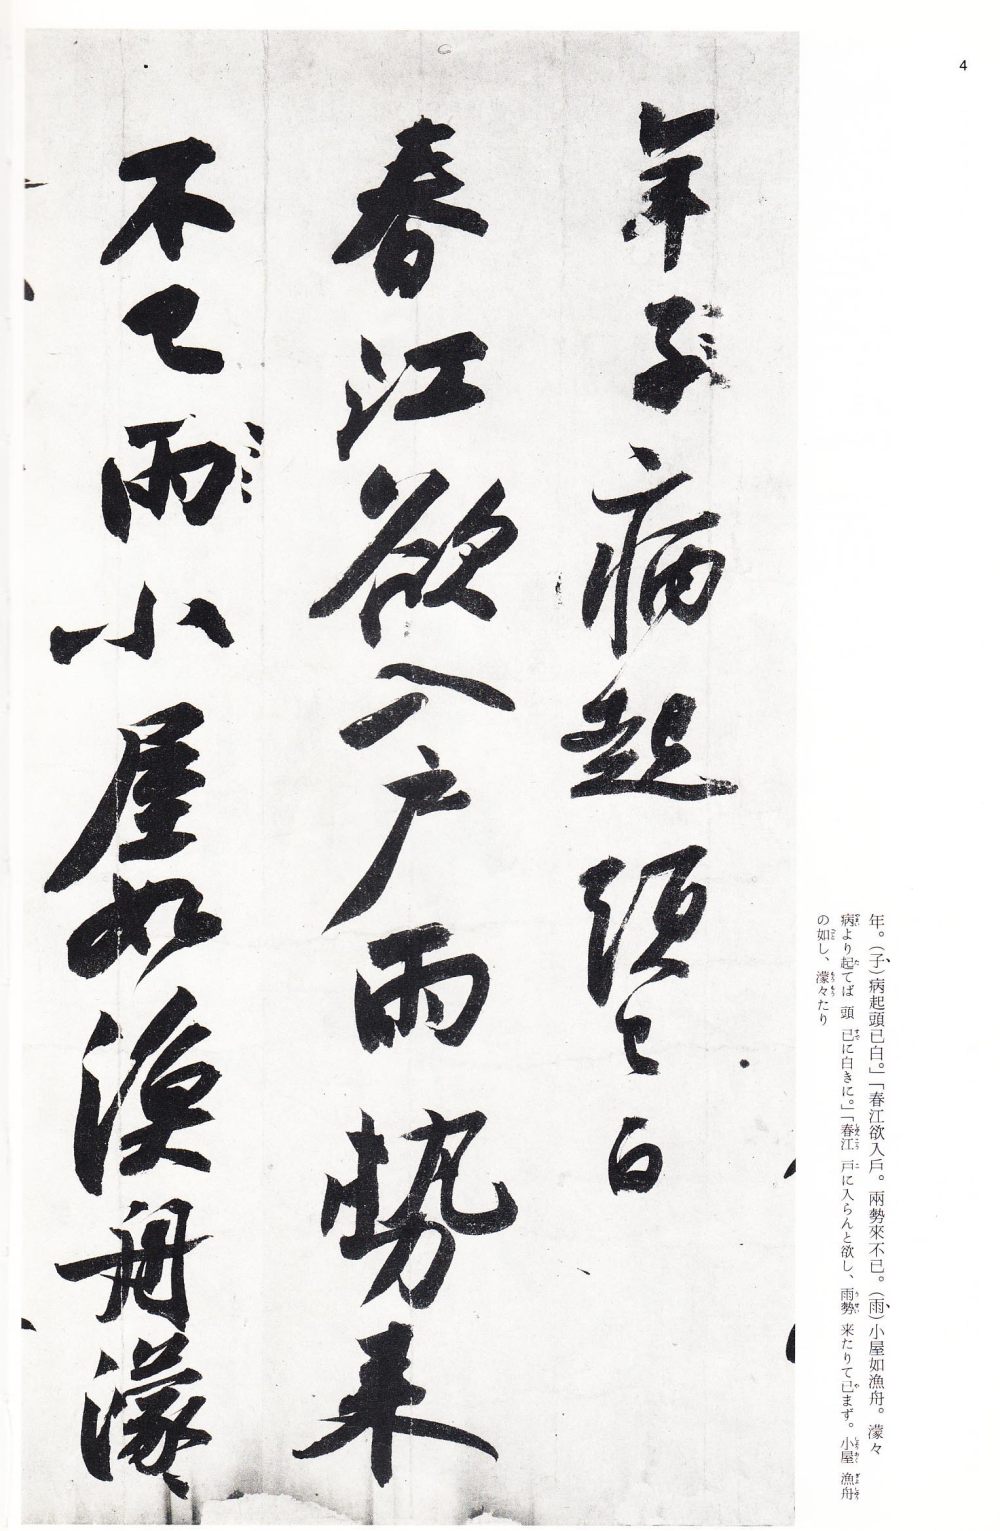 4
年子病起頭已白
春江欲入戶雨勢来
不已雨小屋如漁舟濛
年。（子）病起頭已白。」「春江欲入戶。兩勢來不已。（雨）小屋如漁舟。濛々
病より起てば 頭 已に白きに。」「春江 戸に入らんと欲し、雨勢 来たりて已まず。小屋 漁舟
の如し、濛々たり